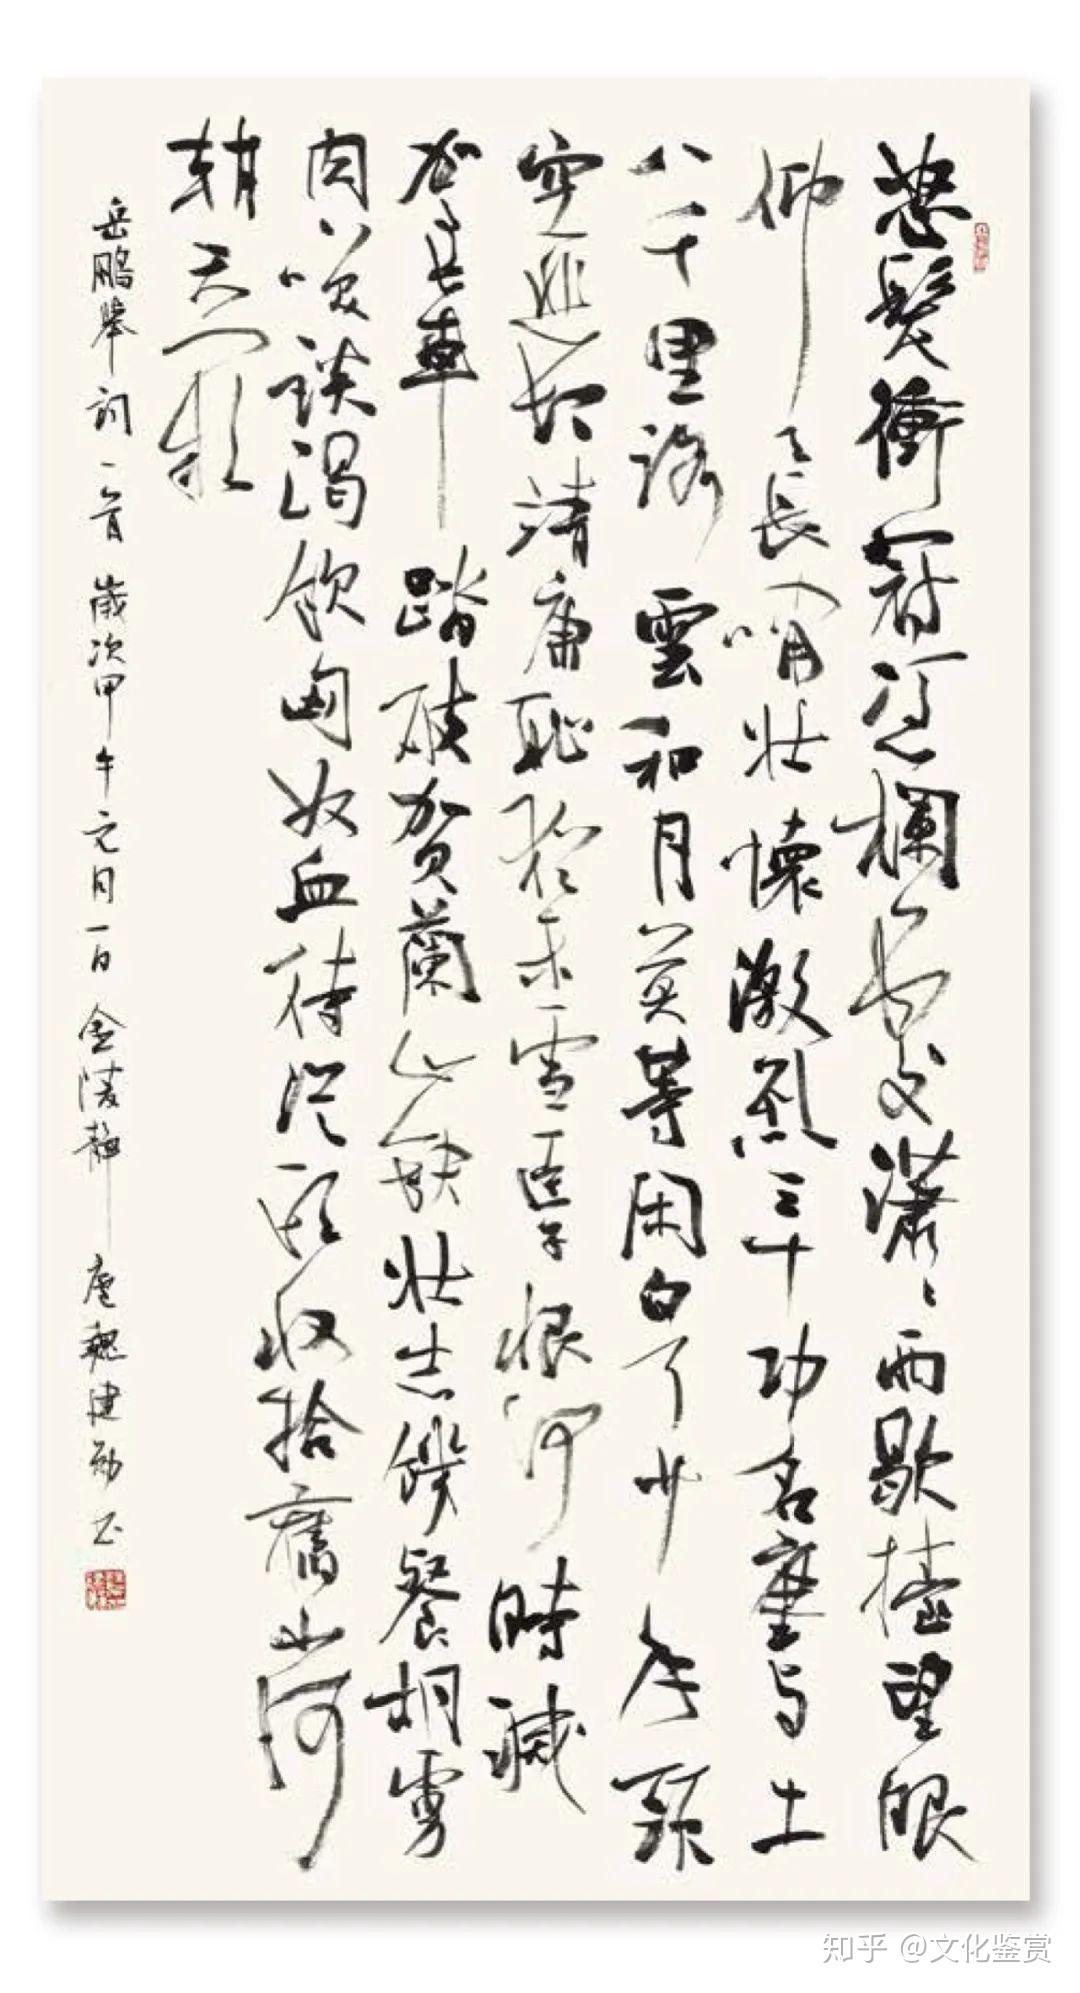 怒髮衝冠憑欄處瀟瀟雨歇擡望眼
仰天長嘯壯懷激烈三十功名塵与土
八千里路雲和月莫等閑白了少年頭
空悲切靖康恥猶未雪臣子恨何時滅
駕長車踏破賀蘭山缺壯志饑餐胡虜
肉笑談渴飲匈奴血待從頭收拾舊山河
朝天闕
岳鵬舉詞一首 歲次甲午元月一日 金陵静一廬魏建勋书
知乎 @文化鉴赏